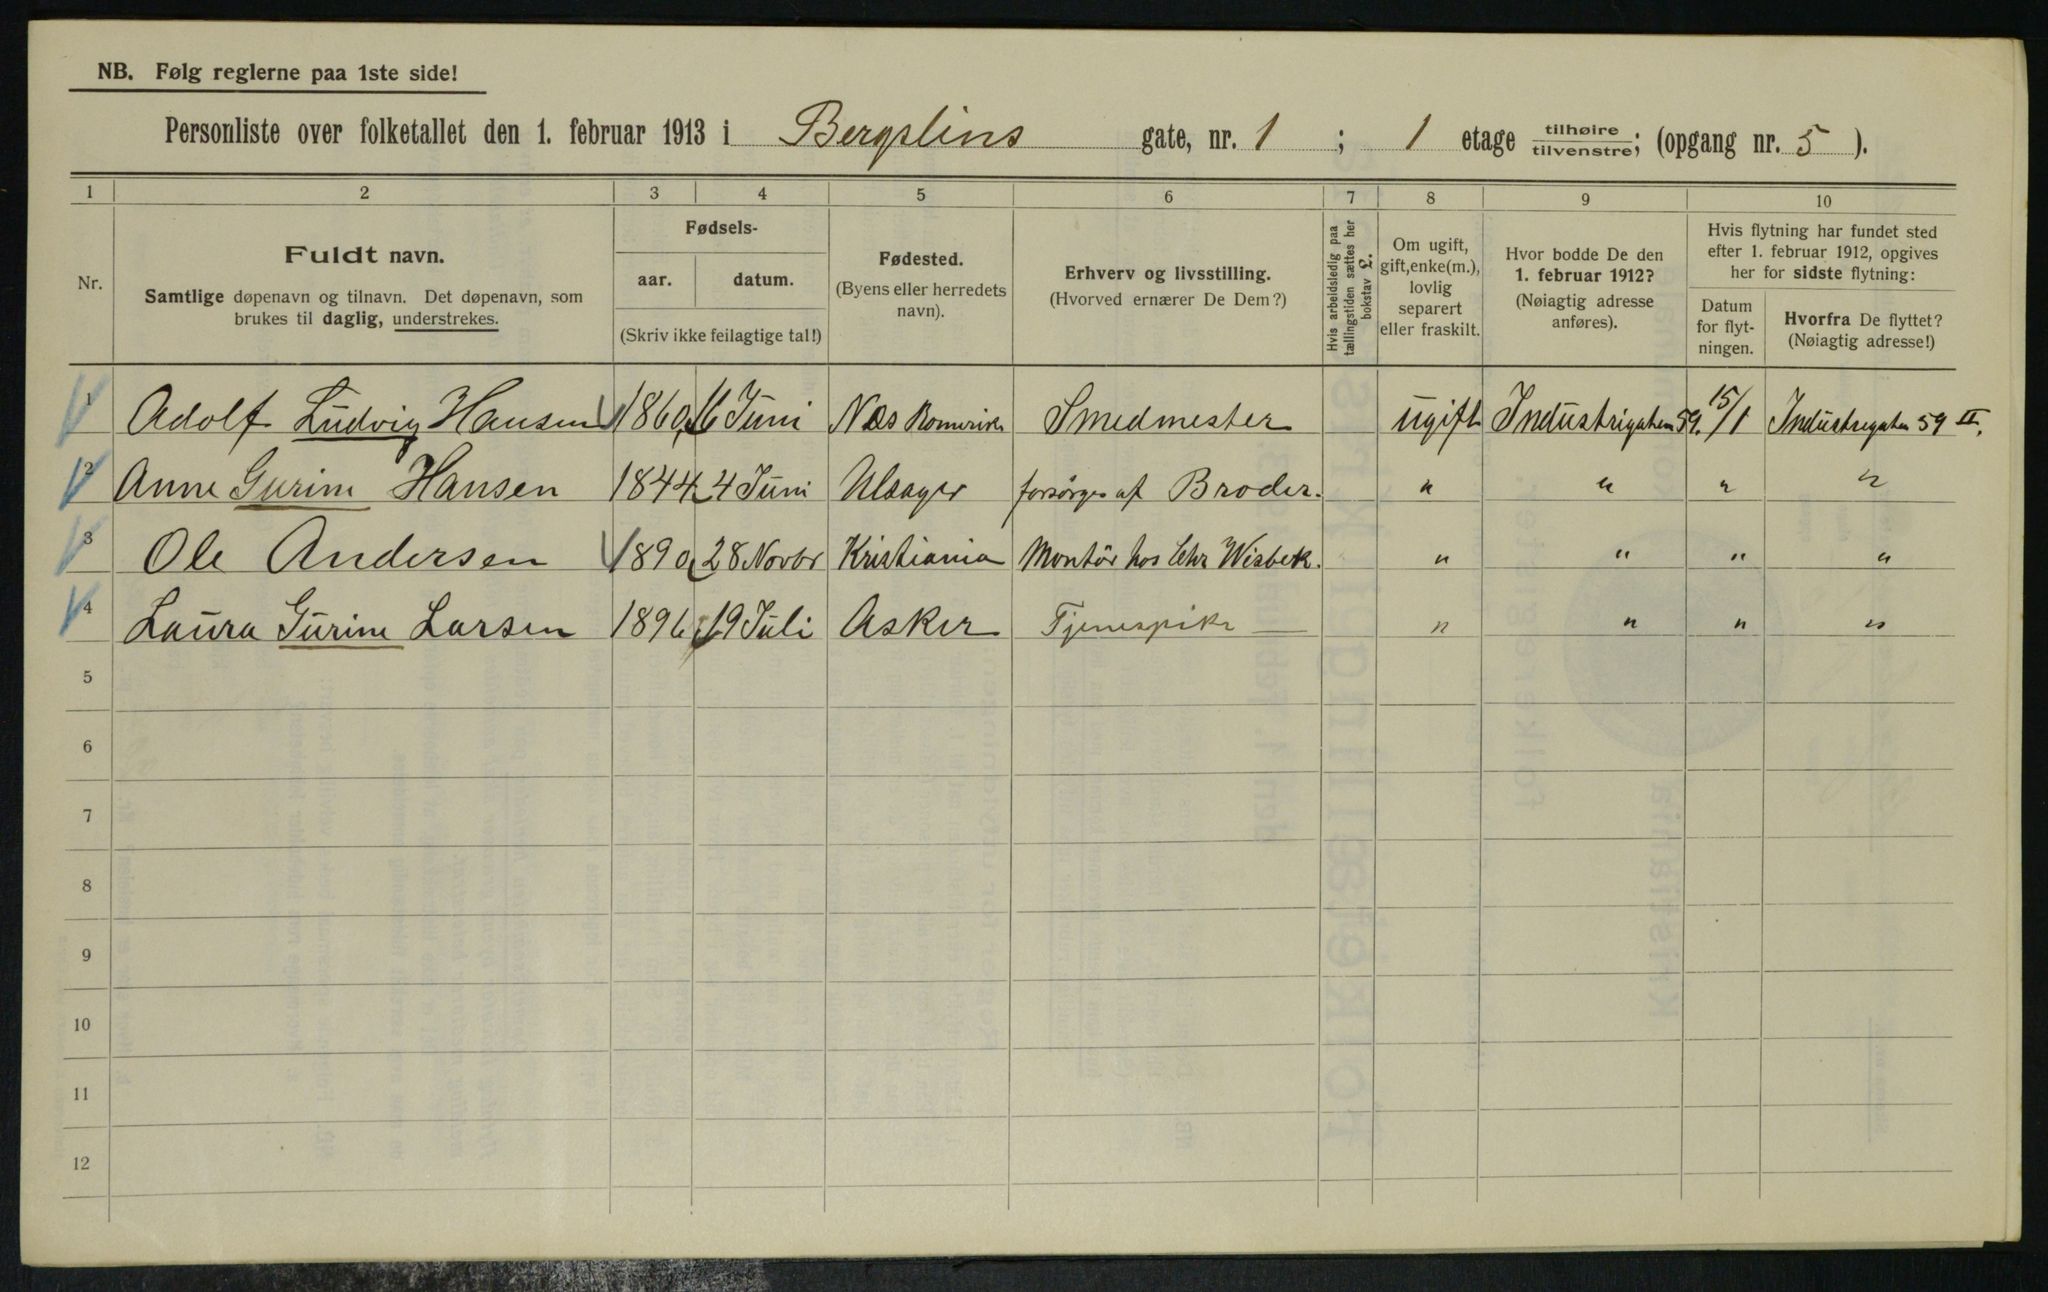 NB. Følg reglerne paa 1ste side!
Personliste over folketallet den 1. februar 1913 i Bergslins gate, nr. 1 ; 1 etage tilhøire tilvenstre; (opgang nr. 5 ).
1 2 3 4 5 6 7 8 9 10
Nr.
Fuldt navn.
Samtlige døpenavn og tilnavn. Det døpenavn, som
brukes til daglig, understrekes.
Fødsels-
aar. datum.
(Skriv ikke feilagtige tal!)
Fødested.
(Byens eller herredets
navn).
Erhverv og livsstilling.
(Hvorved ernærer De Dem?)
Hvis arbeidsledig paa
tællingstiden sættes her
bokstav L.
Om ugift,
gift, enke(m.),
lovlig
separert
eller fraskilt.
Hvor bodde De den
1. februar 1912?
(Nøiagtig adresse
anføres).
Hvis flytning har fundet sted
efter 1. februar 1912, opgives
her for sidste flytning:
Datum
for flyt-
ningen.
Hvorfra De flyttet?
(Nøiagtig adresse!)
1 Adolf Ludvig Hansen 1860 16 Juni Næs Romerike Smedmester ugift Industrigaten 59. 15/1 Industrigaten 59 II.
2 Anne Gurine Hansen 1844 4 Juni Ulsager forsörges af Broder. " " " "
3 Ole Andersen 1890 28 Novbr Kristiania Montör hos Chr Wisbek. " " " "
4 Laura Gurine Larsen 1896 19 Juli Asker Tjenespike — " " " "
5
6
7
8
9
10
11
12